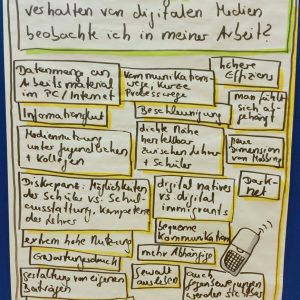 verhalten von digitalen Medien
beobachte ich in meiner Arbeit?
Datenmenge an
Arbeitsmaterial
im PC/Internet
Kommunikations
wege, kurze
Prozesswege
höhere
Effizienz
Informationsflut
Beschleunigung
man fühlt
sich ab-
gehängt
Mediennutzung
unter Jugendlichen
+ Kollegen
dichte Nähe
herstellbar
zwischen Lehrer
+ Schüler
neue
Dimension
von Mobbing
Diskrepanz: Möglichkeiten
der Schüler vs. Schul-
ausstattung, Kompetenz
des Lehrers
digital natives
vs digital
immigrants
Dark-
net
extrem hohe Nutzung
bequeme
Kommunikation
Erwartungsdruck
mehr Abhängige
Gestaltung von eigenen
Beiträgen
Gewalt
ausleben
auch
Gegenbewegungen
werden sichtbar